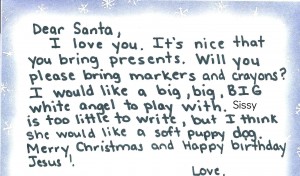 Dear Santa,
I love you. It's nice that
you bring presents. Will you
please bring markers and crayons?
I would like a big, big, BIG
white angel to play with. Sissy
is too little to write, but I think
she would like a soft puppy dog.
Merry Christmas and Happy birthday
Jesus!
Love,